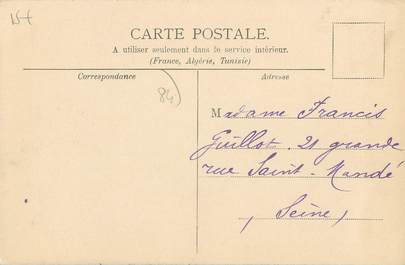 CARTE POSTALE.
A utiliser seulement dans le service intérieur.
(France, Algérie, Tunisie)
Correspondance
Adresse
84
Madame Francis
Guillot. 21 grande
rue Saint-Mandé
(Seine)